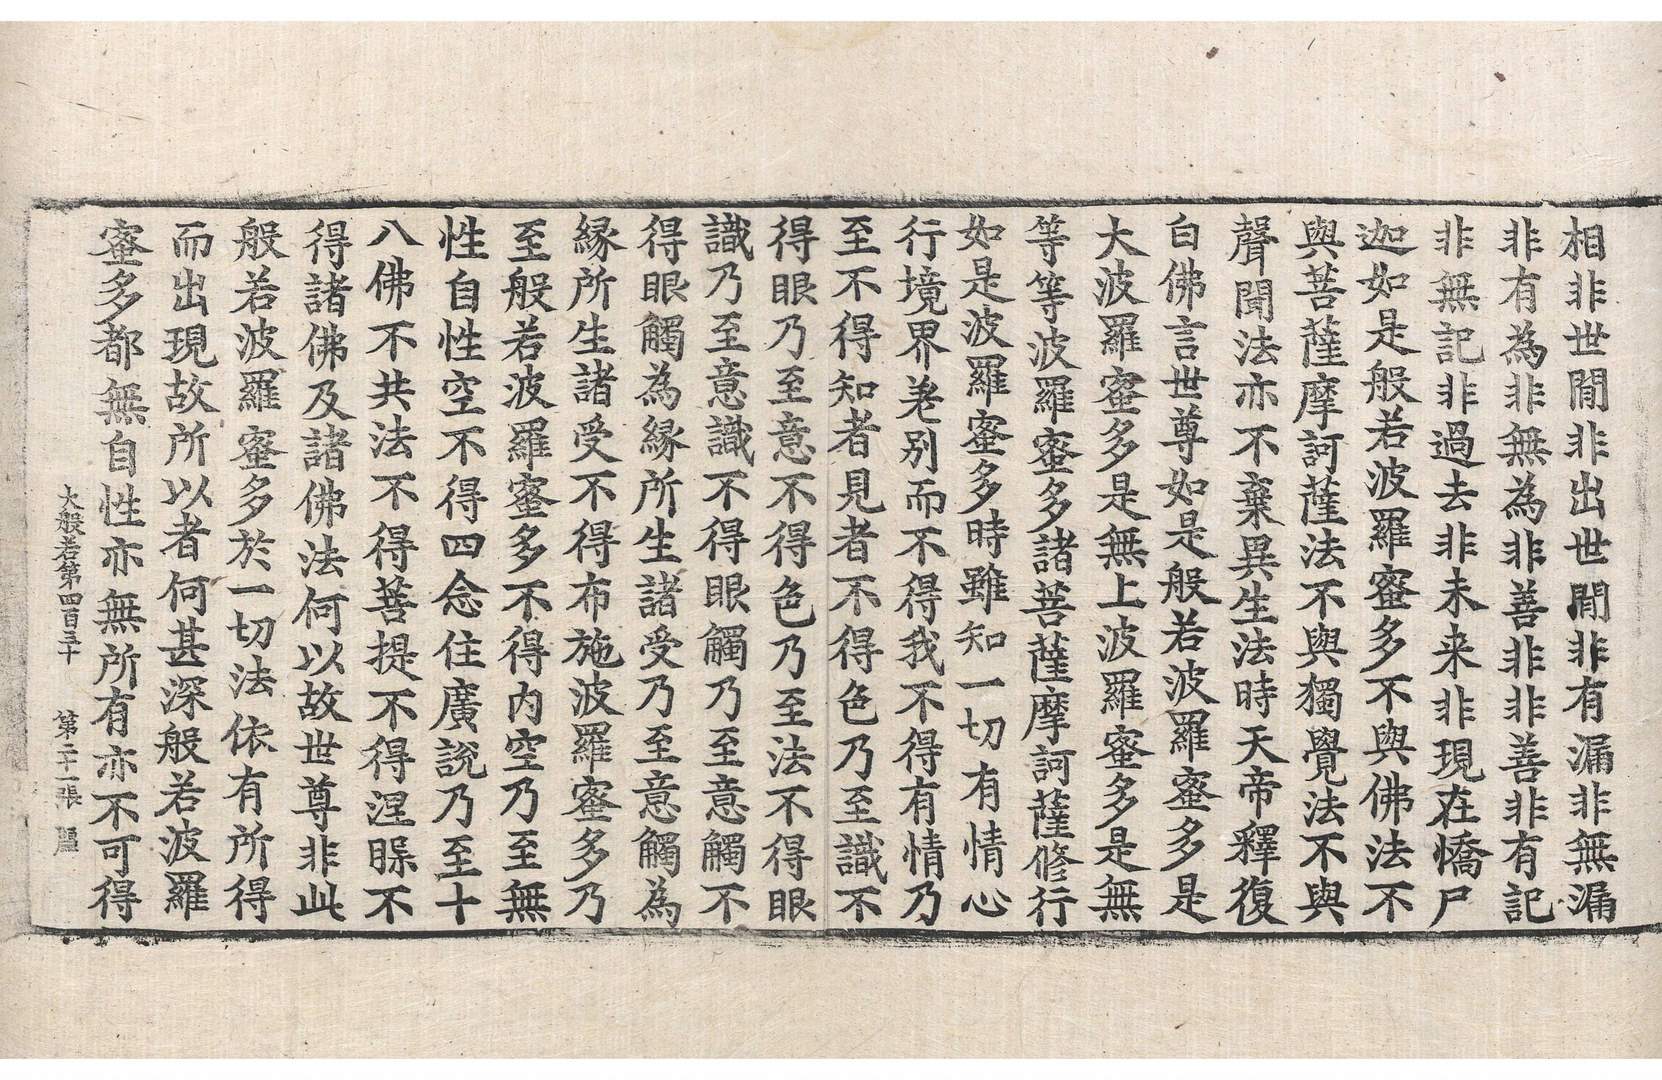 相非世閒非出世閒非有漏非無漏
非有為非無為非善非非善非有記
非無記非過去非未来非現在憍尸
迦如是般若波羅蜜多不與佛法不
與菩薩摩訶薩法不與獨覺法不與
聲聞法亦不棄異生法時天帝釋復
白佛言世尊如是般若波羅蜜多是
大波羅蜜多是無上波羅蜜多是無
等等波羅蜜多諸菩薩摩訶薩修行
如是波羅蜜多時雖知一切有情心
行境界差别而不得我不得有情乃
至不得知者見者不得色乃至識不
得眼乃至意不得色乃至法不得眼
識乃至意識不得眼觸乃至意觸不
得眼觸為縁所生諸受乃至意觸為
縁所生諸受不得布施波羅蜜多乃
至般若波羅蜜多不得内空乃至無
性自性空不得四念住廣說乃至十
八佛不共法不得菩提不得涅槃不
得諸佛及諸佛法何以故世尊非此
般若波羅蜜多於一切法依有所得
而出現故所以者何甚深般若波羅
蜜多都無自性亦無所有亦不可得
大般若第四百三十 第二十一張